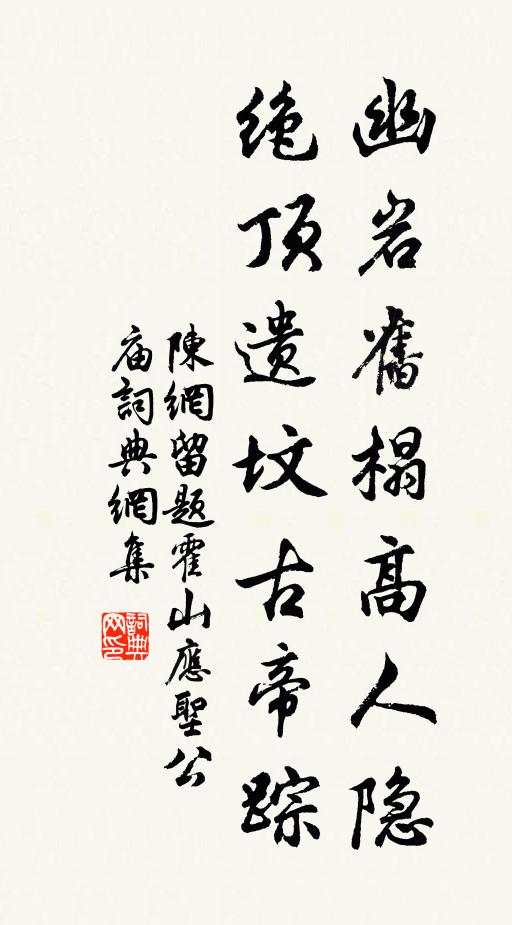 幽岩舊榻高人隐
绝顶遗坟古帝踪
陳網留题霍山應聖公
庙詞典網集
詞典网印